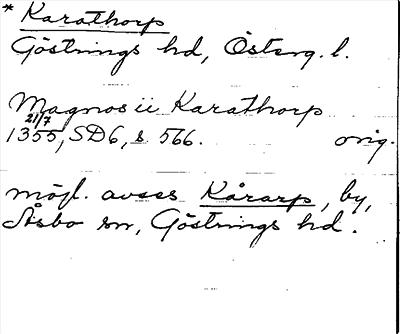 * Karathorp
Göstrings hd, Österg. l.
Magnos ii Karathorp
21/7
1355, SD6, s 566. orig.
möjl. avses Kårarp, by,
Åsbo sn, Göstrings hd.